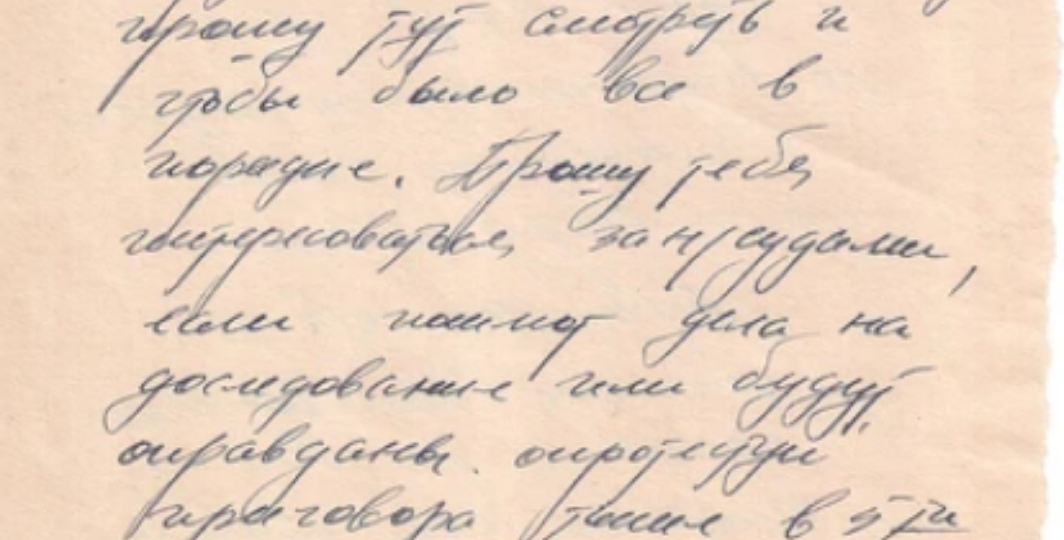 прошу тут смотреть и
чтобы было все в
порядке. Прошу тебя
интересоваться за н/судами,
если пошлют дела на
доследование или будут
оправданы. опротестуй
приговора также в 5ти